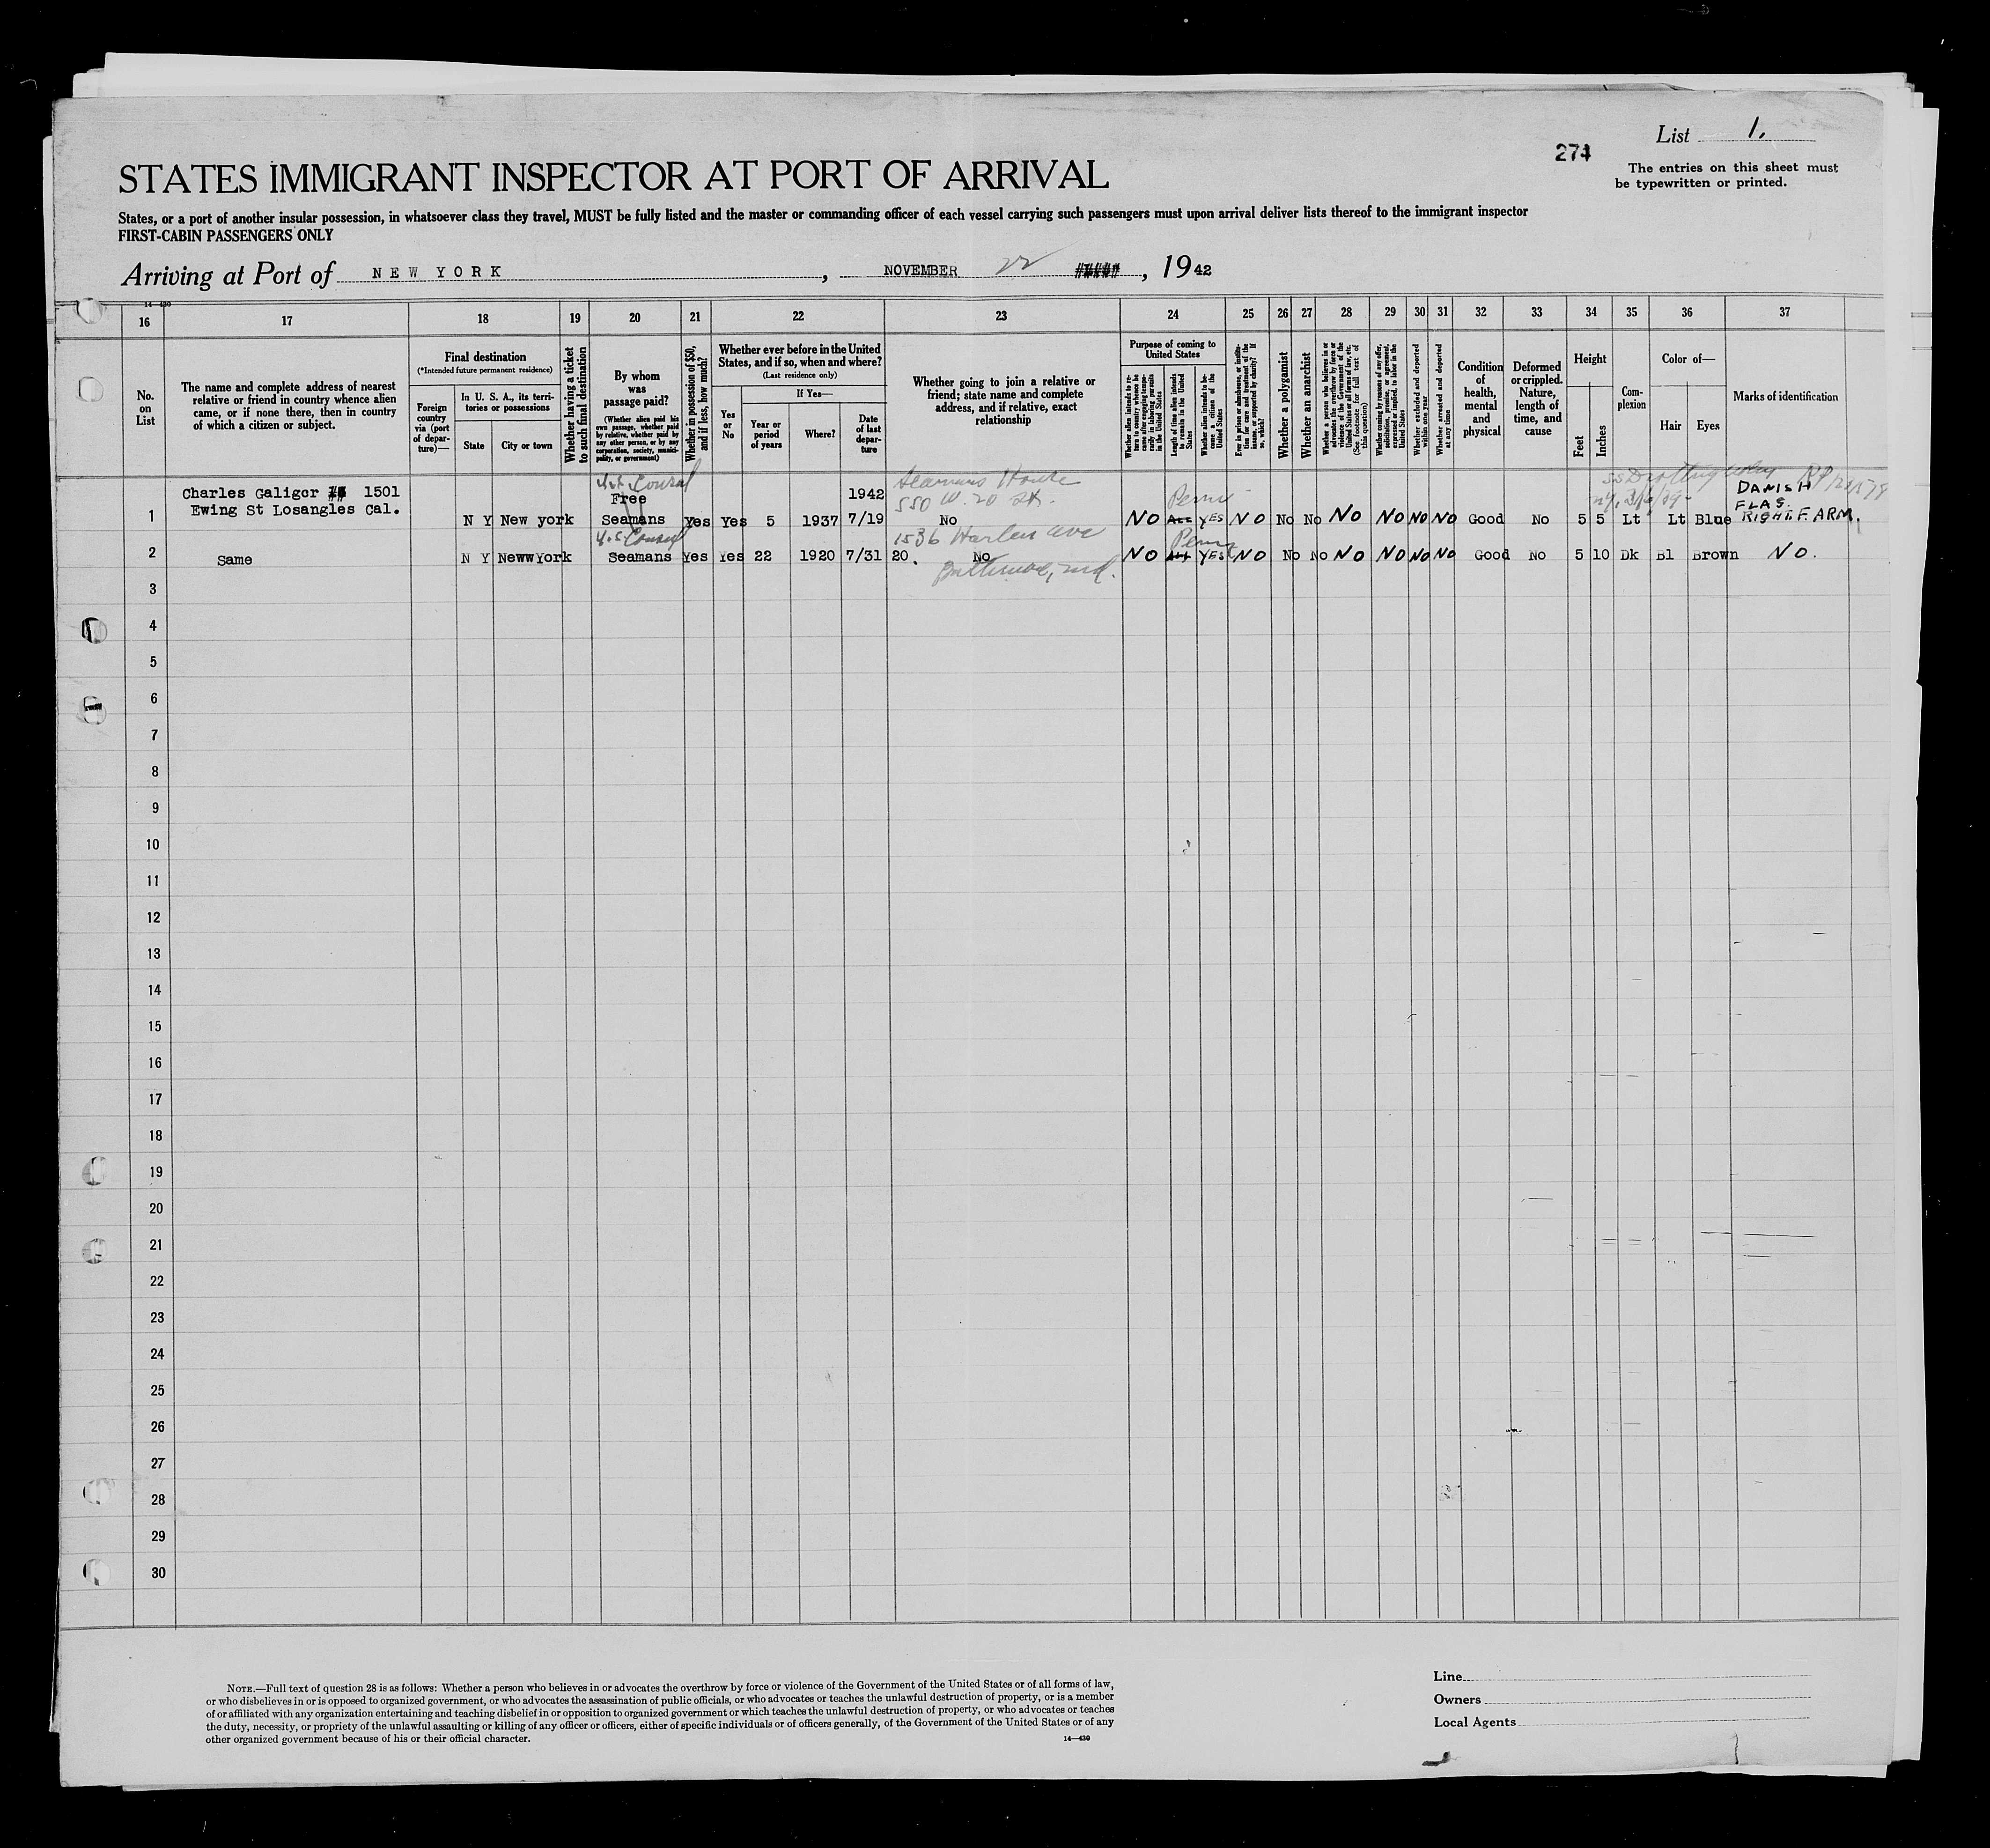 List 1.
274
The entries on this sheet must
be typewritten or printed.
STATES IMMIGRANT INSPECTOR AT PORT OF ARRIVAL
States, or a port of another insular possession, in whatsoever class they travel, MUST be fully listed and the master or commanding officer of each vessel carrying such passengers must upon arrival deliver lists thereof to the immigrant inspector
FIRST-CABIN PASSENGERS ONLY
Arriving at Port of NEW YORK, NOVEMBER 22, 1942
14-430
16 17 18 19 20 21 22 23 24 25 26 27 28 29 30 31 32 33 34 35 36 37
No.
on
List
The name and complete address of nearest
relative or friend in country whence alien
came, or if none there, then in country
of which a citizen or subject.
Final destination
(*Intended future permanent residence)
Foreign
country
via (port
of depar-
ture)—
In U. S. A., its terri-
tories or possessions
State
City or town
Whether having a ticket
to such final destination
By whom
was
passage paid?
(Whether alien paid his
own passage, whether paid
by relative, whether paid by
any other person, or by any
corporation, society, munici-
pality, or government)
Whether in possession of $50,
and if less, how much?
Whether ever before in the United
States, and if so, when and where?
(Last residence only)
Yes
or
No
If Yes—
Year or
period
of years
Where?
Date
of last
depar-
ture
Whether going to join a relative or
friend; state name and complete
address, and if relative, exact
relationship
Purpose of coming to
United States
Whether alien intends to re-
turn to country whence he
came after engaging tempo-
rarily in laboring pursuits
in the United States
Length of time alien intends
to remain in the United
States
Whether alien intends to be-
come a citizen of the
United States
Ever in prison or almshouse, or institu-
tion for care and treatment of the
insane, or supported by charity? If
so, which?
Whether a polygamist
Whether an anarchist
Whether a person who believes in or
advocates the overthrow by force or
violence of the Government of the
United States or all forms of law, etc.
(See footnote for full text of
this question)
Whether coming by reasons of any offer,
solicitation, promise, or agreement,
expressed or implied, to labor in the
United States
Whether excluded and deported
within one year
Whether arrested and deported
at any time
Condition
of
health,
mental
and
physical
Deformed
or crippled.
Nature,
length of
time, and
cause
Height
Feet
Inches
Com-
plexion
Color of—
Hair
Eyes
Marks of identification
1 Charles Galigor 1501
Ewing St Losangles Cal.
N Y New york
U.S. Consul
Free
Seamans Yes Yes 5 1937
1942
7/19
Seamens House
550 W. 20 St.
No
NO Perm YES NO No No NO NO NO NO Good No 5 5 Lt Lt Blue
SS Drottingholm
DANISH
FLAG.
RIGHT. F. ARM.
2 Same N Y NewwYork
U.S. Consul
Seamans Yes Yes 22 1920 7/31 20.
1536 Harlem Ave
No
Baltimore, Md.
NO Perm YES NO No No NO NO NO NO Good No 5 10 Dk Bl Brown NO.
3
4
5
6
7
8
9
10
11
12
13
14
15
16
17
18
19
20
21
22
23
24
25
26
27
28
29
30
NOTE.—Full text of question 28 is as follows: Whether a person who believes in or advocates the overthrow by force or violence of the Government of the United States or of all forms of law,
or who disbelieves in or is opposed to organized government, or who advocates the assassination of public officials, or who advocates or teaches the unlawful destruction of property, or is a member
of or affiliated with any organization entertaining and teaching disbelief in or opposition to organized government or which teaches the unlawful destruction of property, or who advocates or teaches
the duty, necessity, or propriety of the unlawful assaulting or killing of any officer or officers, either of specific individuals or of officers generally, of the Government of the United States or of any
other organized government because of his or their official character.
14—430
Line
Owners
Local Agents